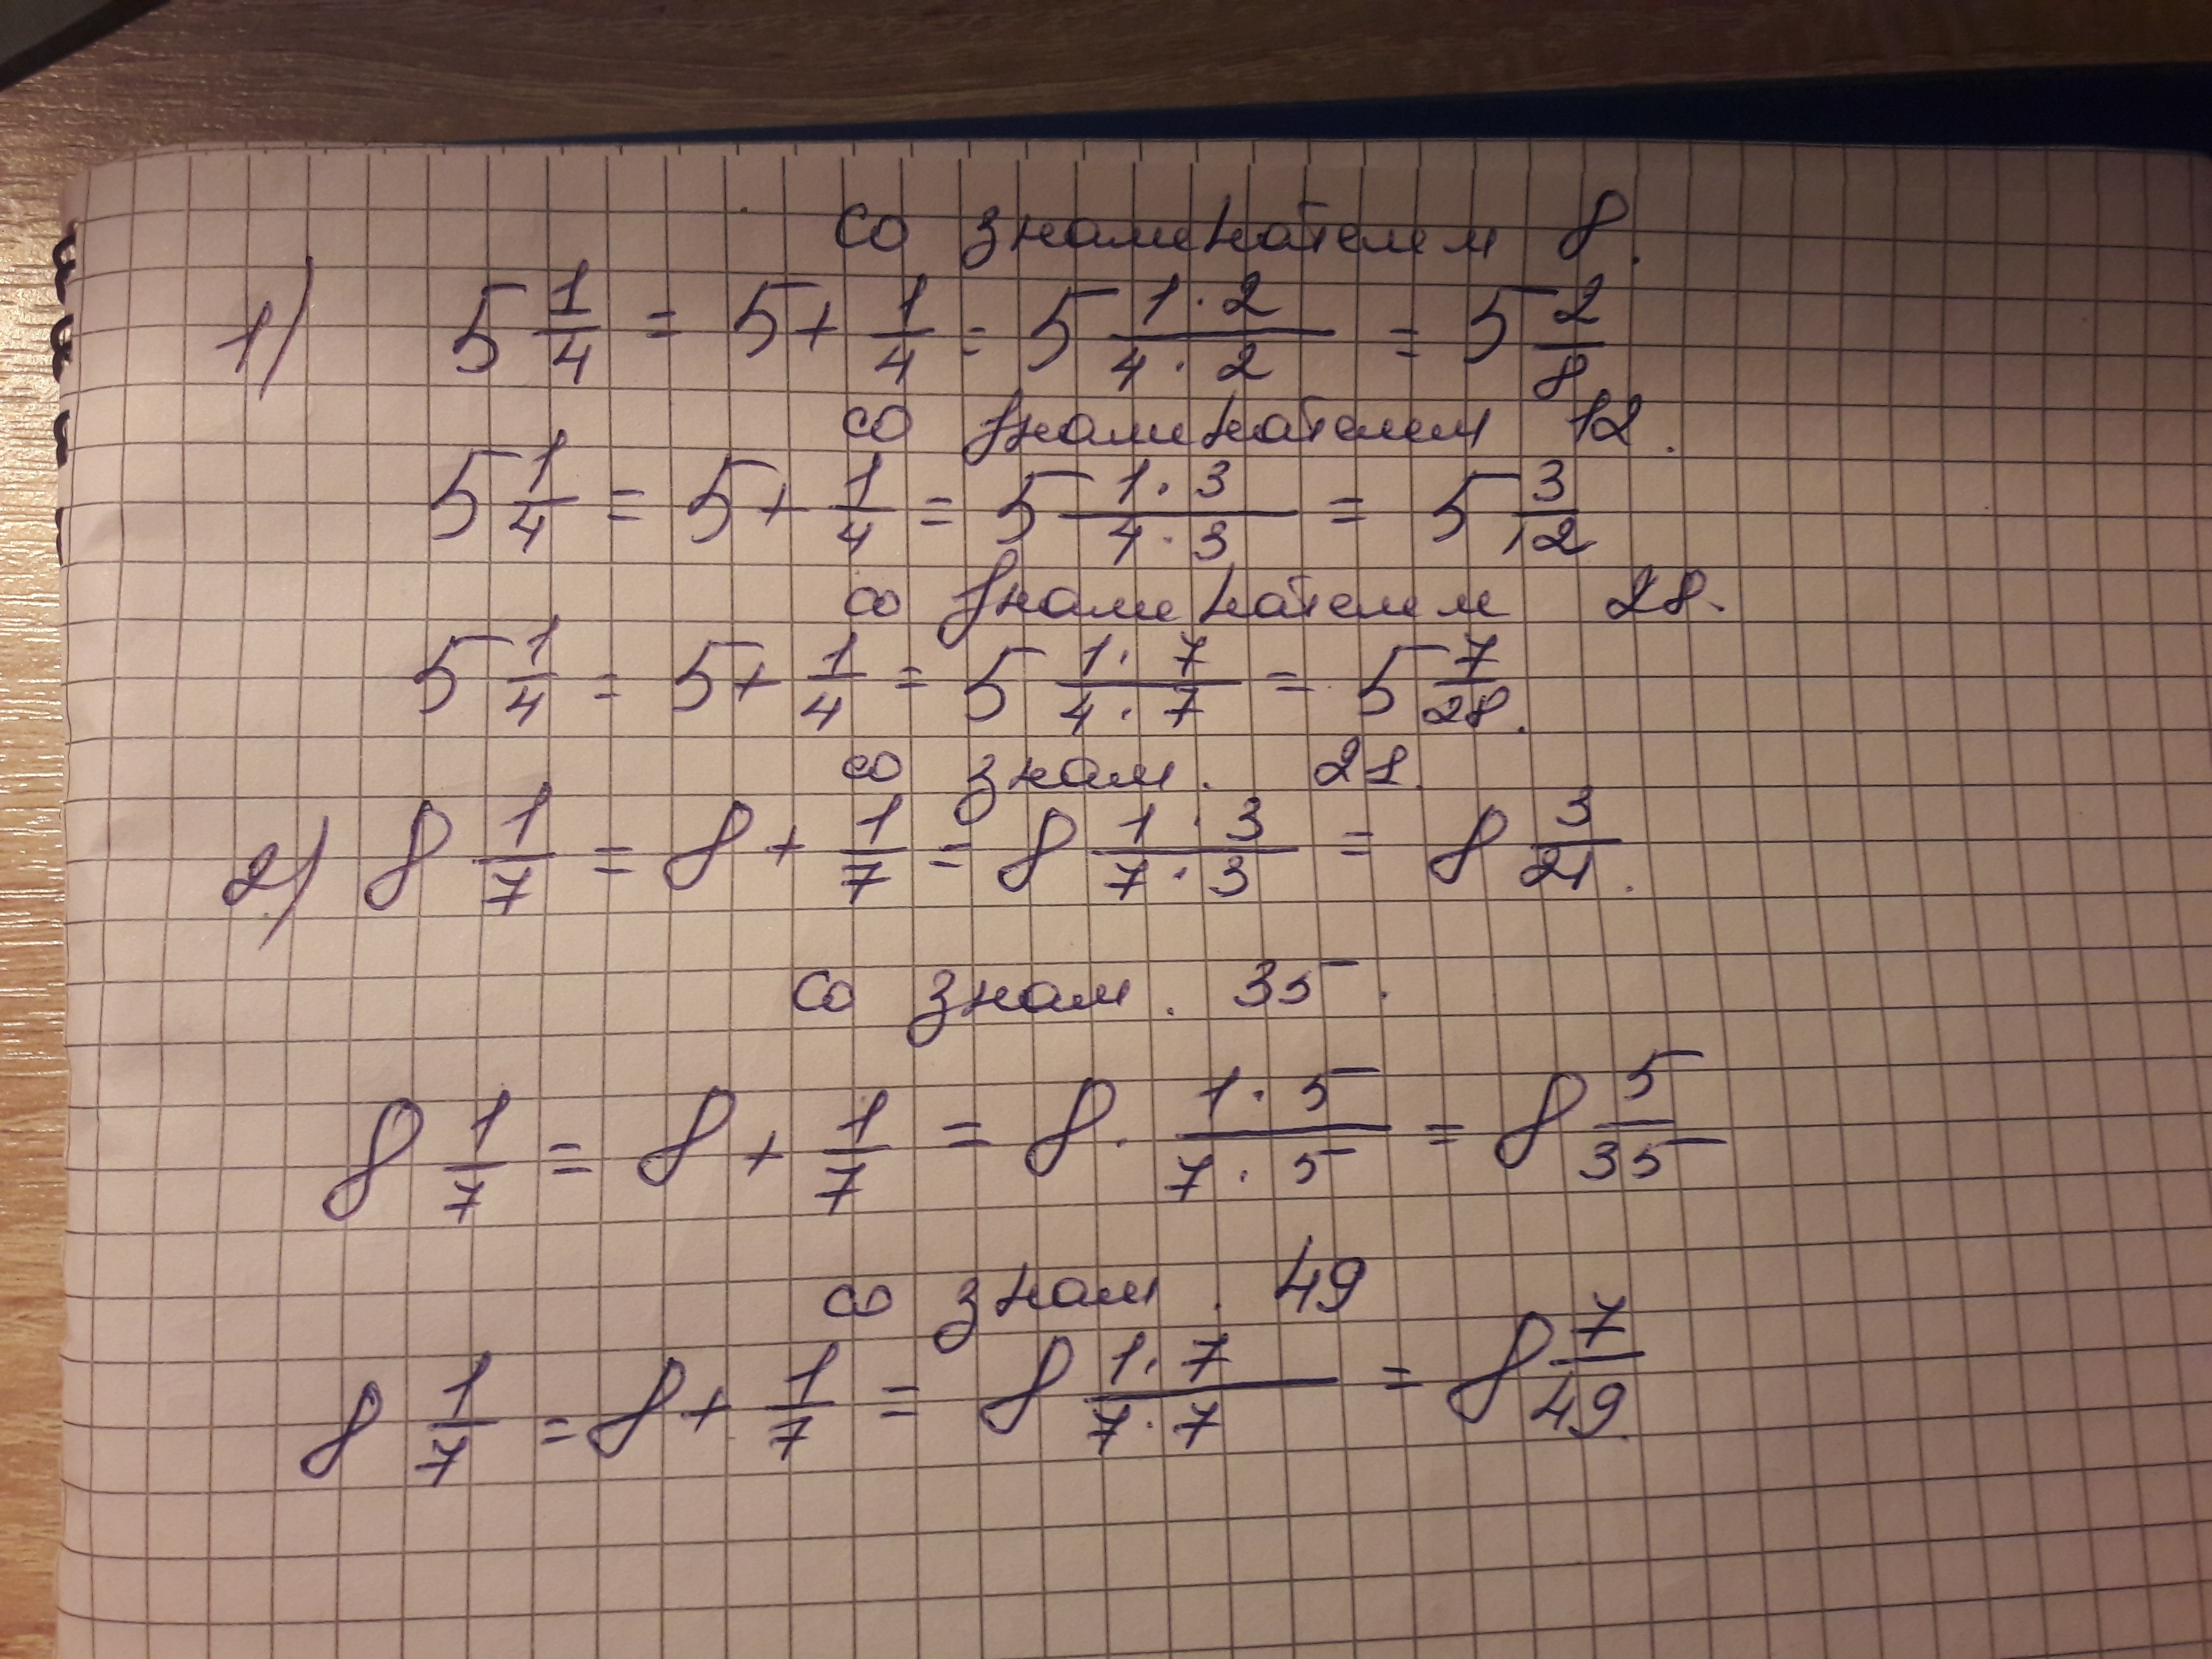 со знаменателем 8.
1) 5 1/4 = 5 + 1/4 = 5 1·2/4·2 = 5 2/8
со знаменателем 12.
5 1/4 = 5 + 1/4 = 5 1·3/4·3 = 5 3/12
со знаменателем 28.
5 1/4 = 5 + 1/4 = 5 1·7/4·7 = 5 7/28.
со знам. 21.
2) 8 1/7 = 8 + 1/7 = 8 1·3/7·3 = 8 3/21.
со знам. 35.
8 1/7 = 8 + 1/7 = 8. 1·5/7·5 = 8 5/35
со знам. 49
8 1/7 = 8 + 1/7 = 8 1·7/7·7 = 8 7/49.